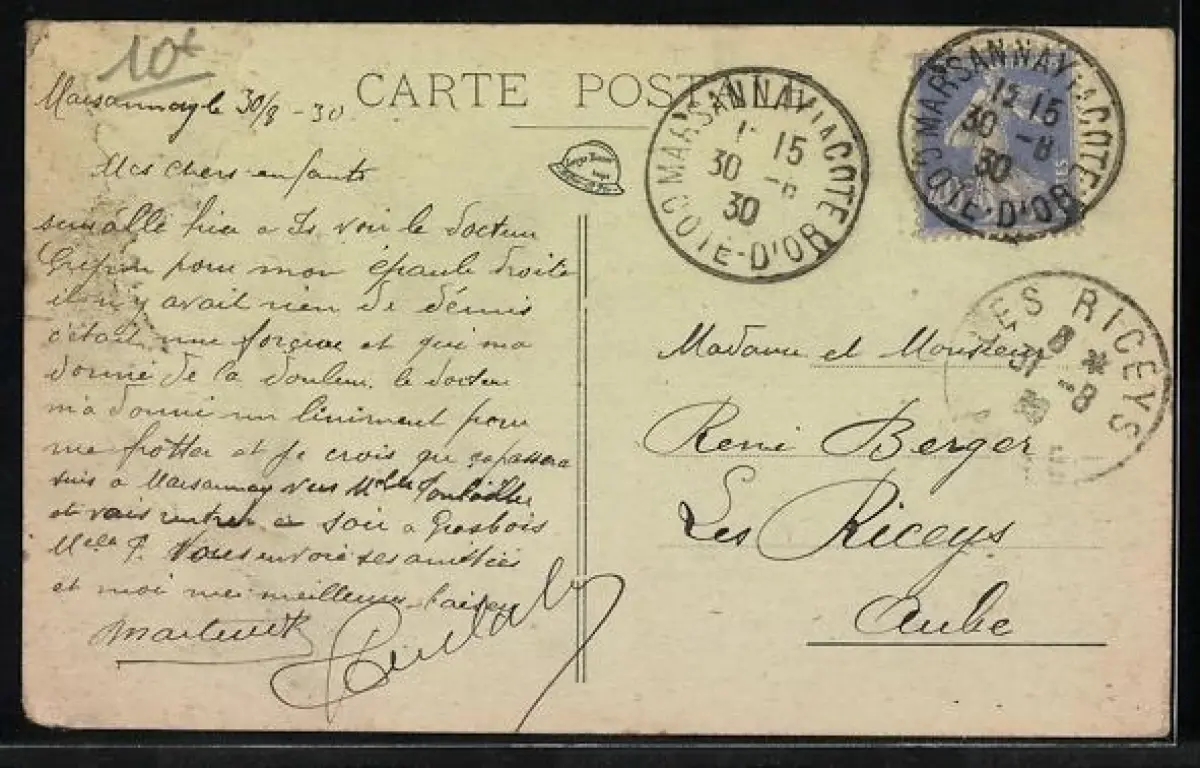 10f
CARTE POSTALE
Marsannay le 30/8 - 30
Mes chers enfants
suis allé hier a Is voir le docteur
pour mon épaule droite
il n'y avait rien de démis
c'était une et qui m'a
donné de la douleur. le docteur
m'a donné un liniment pour
me frotter et je crois que ça passera
suis a Marsannay vers Melle
et vais rentrer ce soir a Grosbois
Melle P. Vous envoie ses amitiés
et moi mes meilleurs baisers
MARSANNAY-LA-COTE
15
30 -8
30
COTE-D'OR
MARSANNAY-LA-COTE
15
30 -8
30
COTE-D'OR
LES RICEYS
8 *
31 -8
30
Madame et Monsieur
René Berger
Les Riceys
Aube